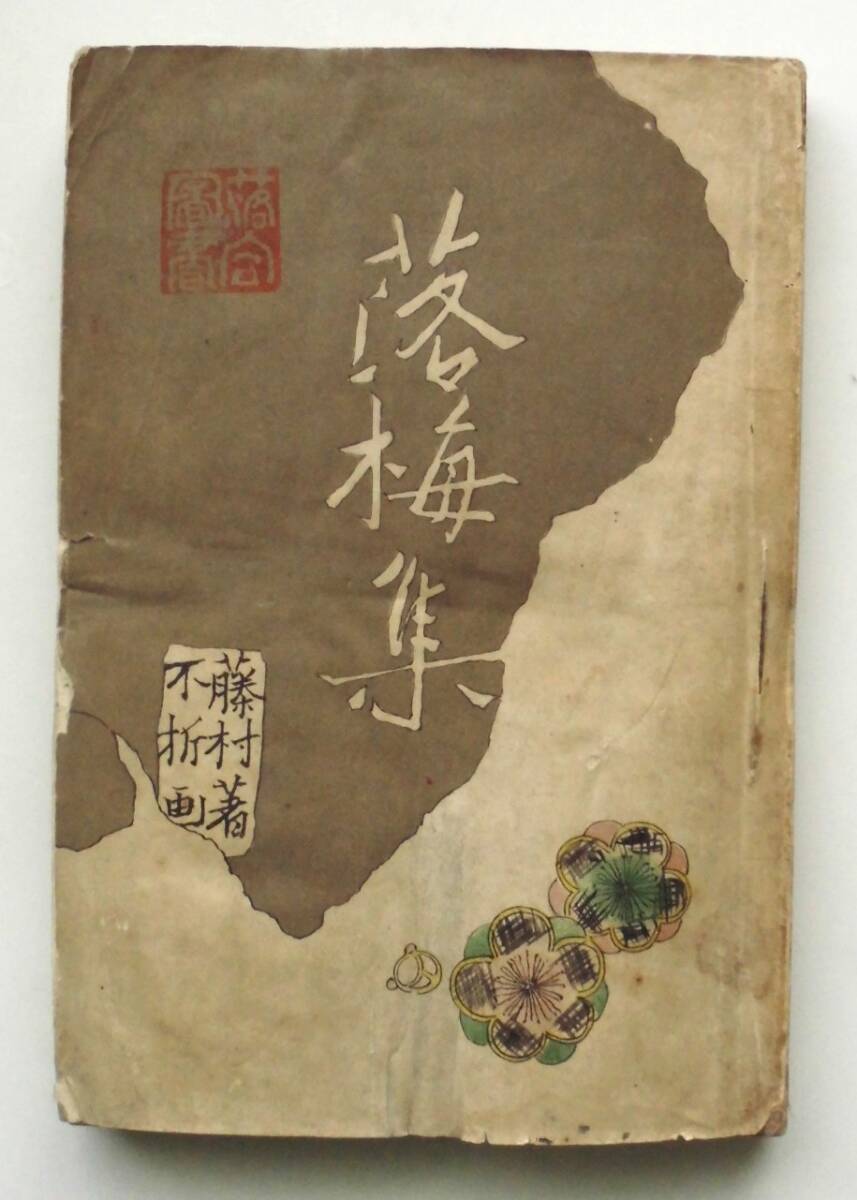 落梅集
藤村著
不折画